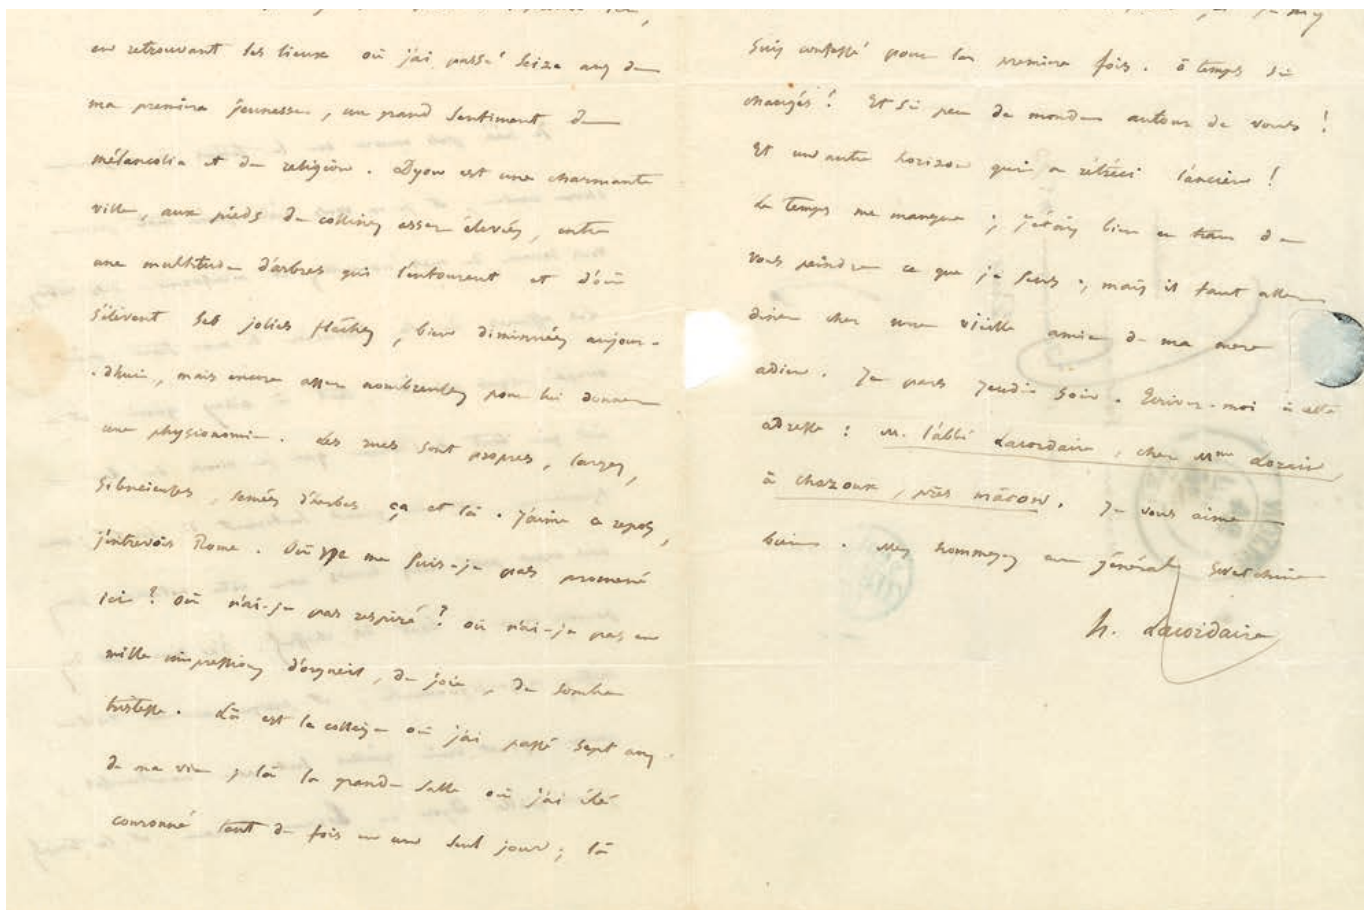 en retrouvant les lieux où j'ai passé seize ans de
ma première jeunesse, un grand sentiment de
mélancolie et de religion. Dijon est une charmante
ville, aux pieds de collines assez élevées, entre
une multitude d'arbres qui l'entourent et d'où
s'élèvent ses jolies flèches, bien diminuées aujour-
-dhui, mais encore assez nombreuses pour lui donner
une physionomie. Les rues sont propres, larges,
silencieuses, semées d'herbes ça et là. J'aime ce repos,
j'entrevois Rome. Où ne me suis-je pas promené
ici ? où n'ai-je pas respiré ? où n'ai-je pas eu
mille impressions d'orgueil, de joie, de sombre
tristesse. Là est le collège où j'ai passé sept ans
de ma vie ; là la grande salle où j'ai été
couronné tant de fois en un seul jour ; là
suis confessé pour la première fois. ô temps si
changés ! Et si peu de monde autour de vous !
Et un autre horizon qui a rétréci l'ancien !
Le temps me manque ; j'étais bien en train de
vous peindre ce que je sens ; mais il faut aller
diner chez une vieille amie de ma mère
adieu. Je pars jeudi soir. Ecrivez-moi à cette
adresse : M. l'abbé Lacordaire, chez Mme Lorain
à chazoux, près mâcon. Je vous aime
bien. Mes hommages au général Swetchine
h. Lacordaire